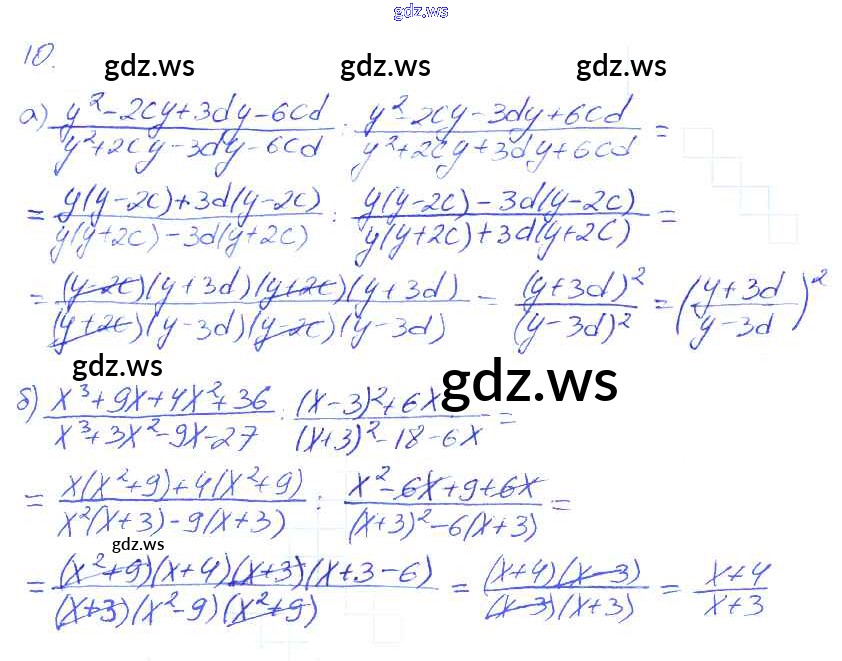 gdz.ws
10.
gdz.ws gdz.ws gdz.ws
а) (y²-2cy+3dy-6cd)/(y²+2cy-3dy-6cd) : (y²-2cy-3dy+6cd)/(y²+2cy+3dy+6cd) =
= (y(y-2c)+3d(y-2c))/(y(y+2c)-3d(y+2c)) : (y(y-2c)-3d(y-2c))/(y(y+2c)+3d(y+2c)) =
= ((y-2c)(y+3d)(y+2c)(y+3d))/((y+2c)(y-3d)(y-2c)(y-3d)) = (y+3d)²/(y-3d)² = ((y+3d)/(y-3d))²
gdz.ws gdz.ws
б) (x³+9x+4x²+36)/(x³+3x²-9x-27) : ((x-3)²+6x)/((x+3)²-18-6x) =
= (x(x²+9)+4(x²+9))/(x²(x+3)-9(x+3)) : (x²-6x+9+6x)/((x+3)²-6(x+3)) =
gdz.ws
= ((x²+9)(x+4)(x+3)(x+3-6))/((x+3)(x²-9)(x²+9)) = ((x+4)(x-3))/((x-3)(x+3)) = (x+4)/(x+3)